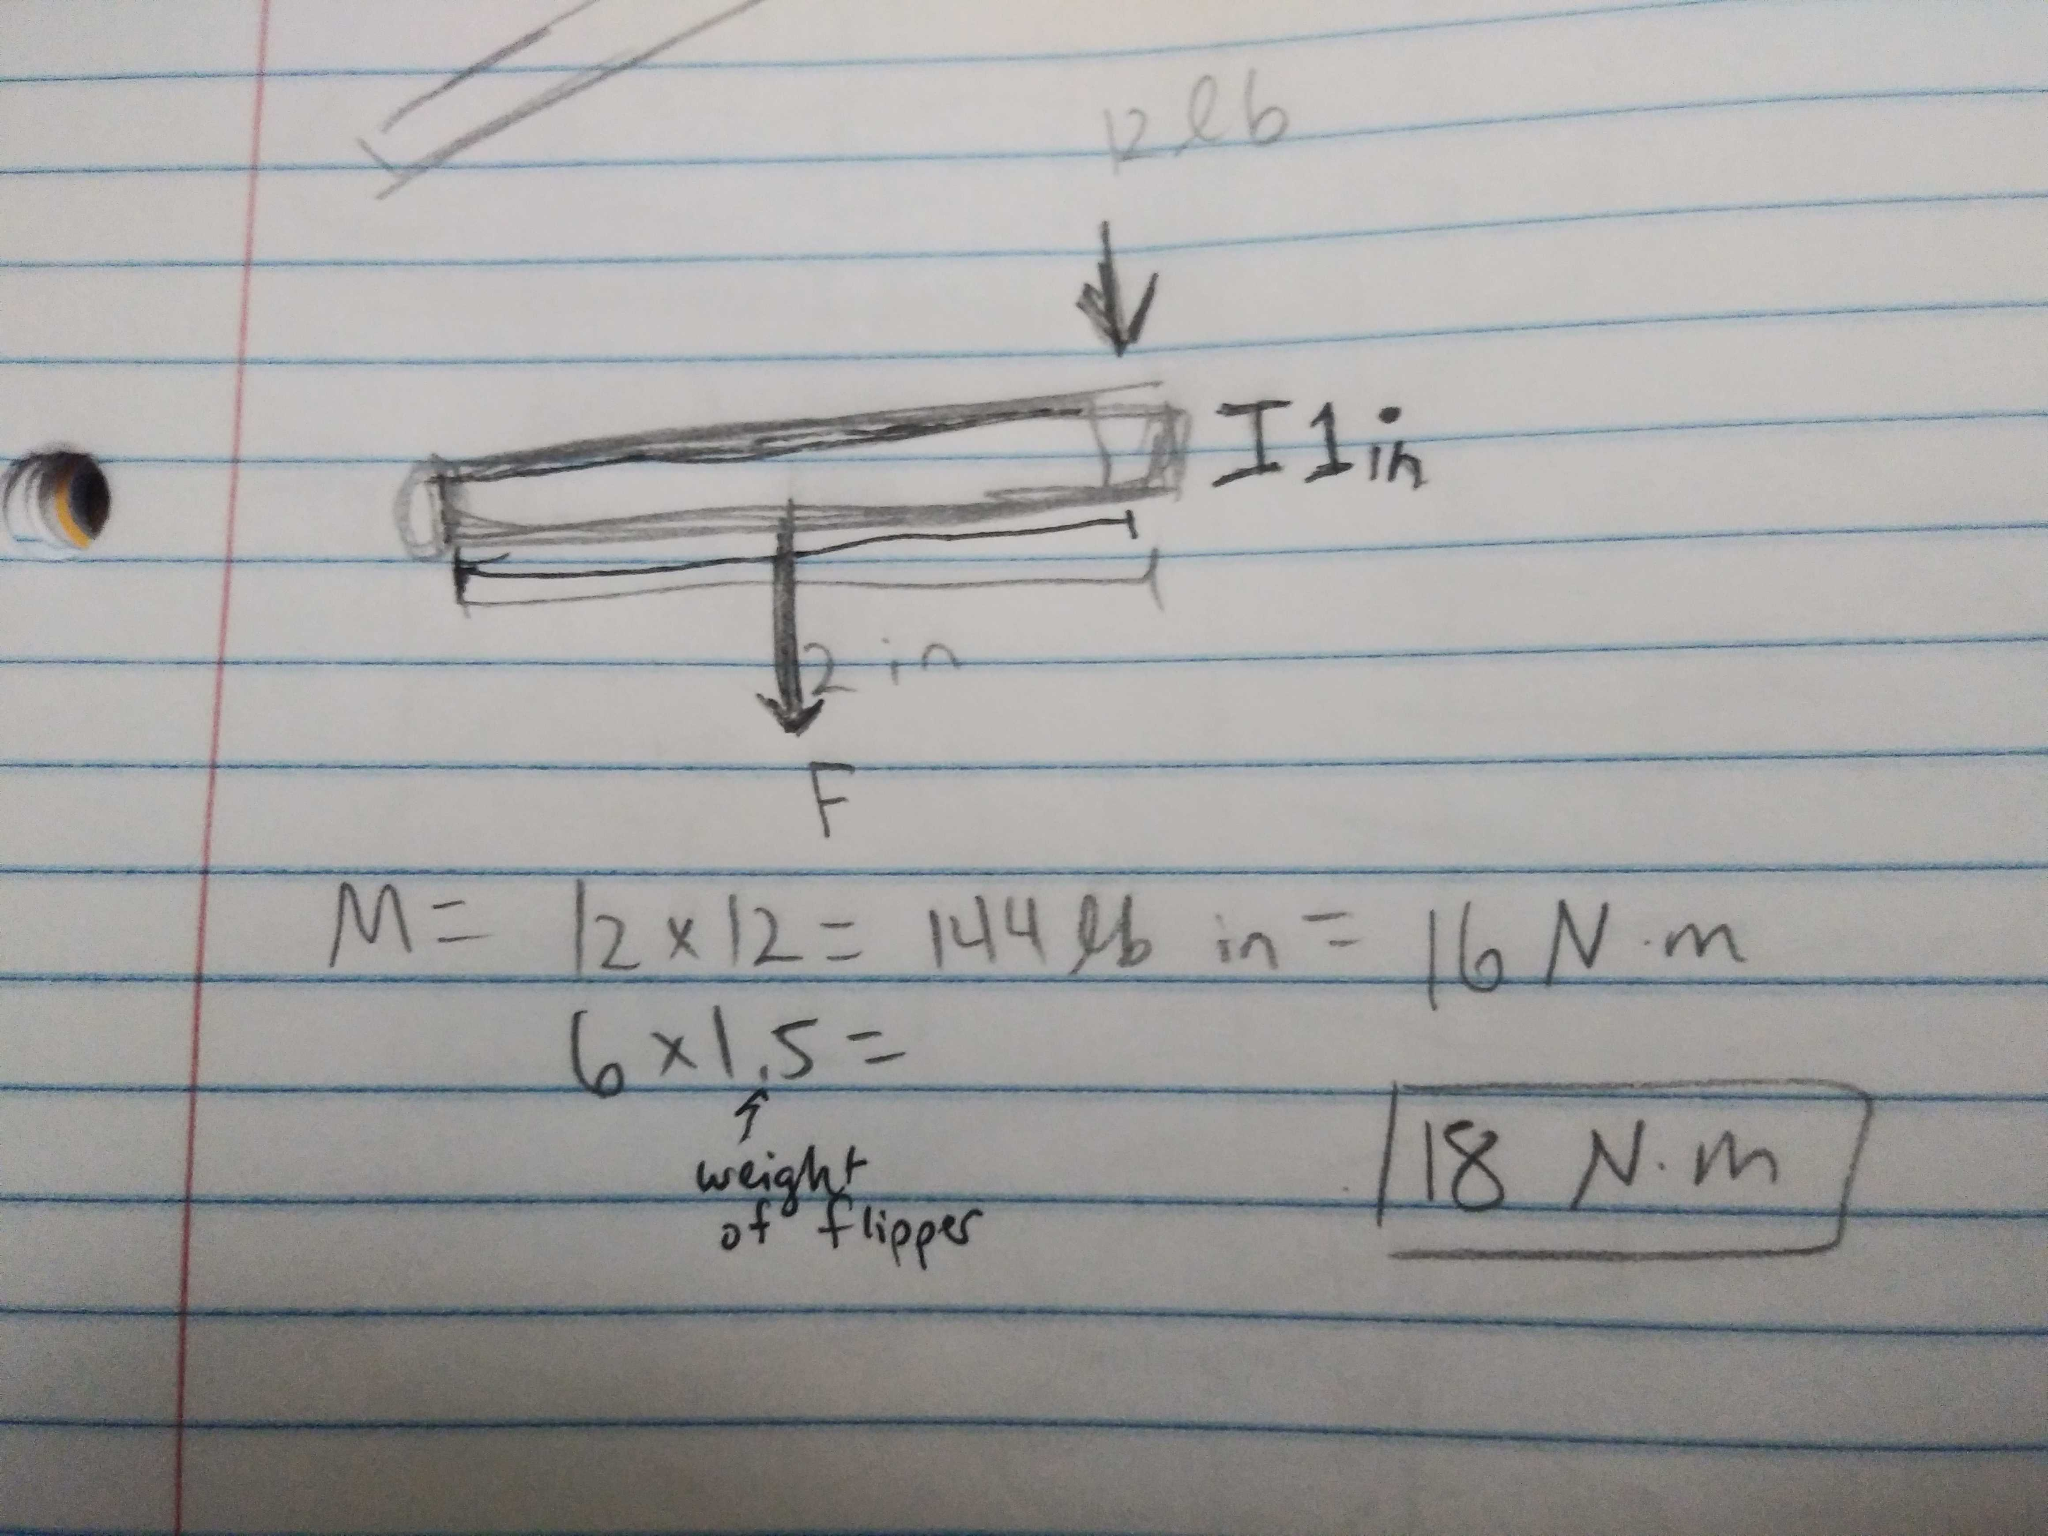 12 lb
1 in
2 in
F
M = 12 x 12 = 144 lb in = 16 N·m
6 x 1.5 =
weight
of flipper
18 N·m